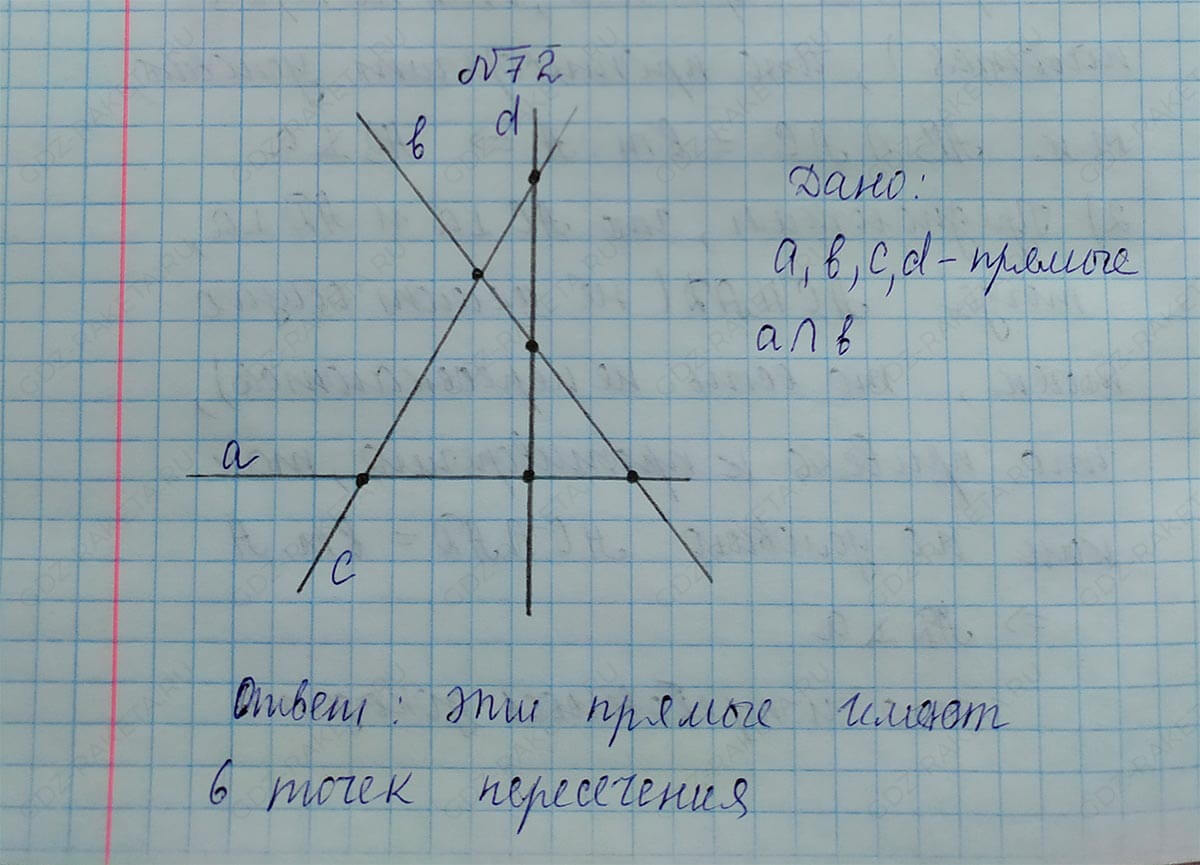 №72
d
в
Дано:
а, в, с, d - прямые
а ∩ в
а
с
Ответ: эти прямые имеют
6 точек пересечения